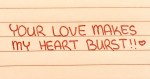 YOUR LOVE MAKES
MY HEART BURST!!♡